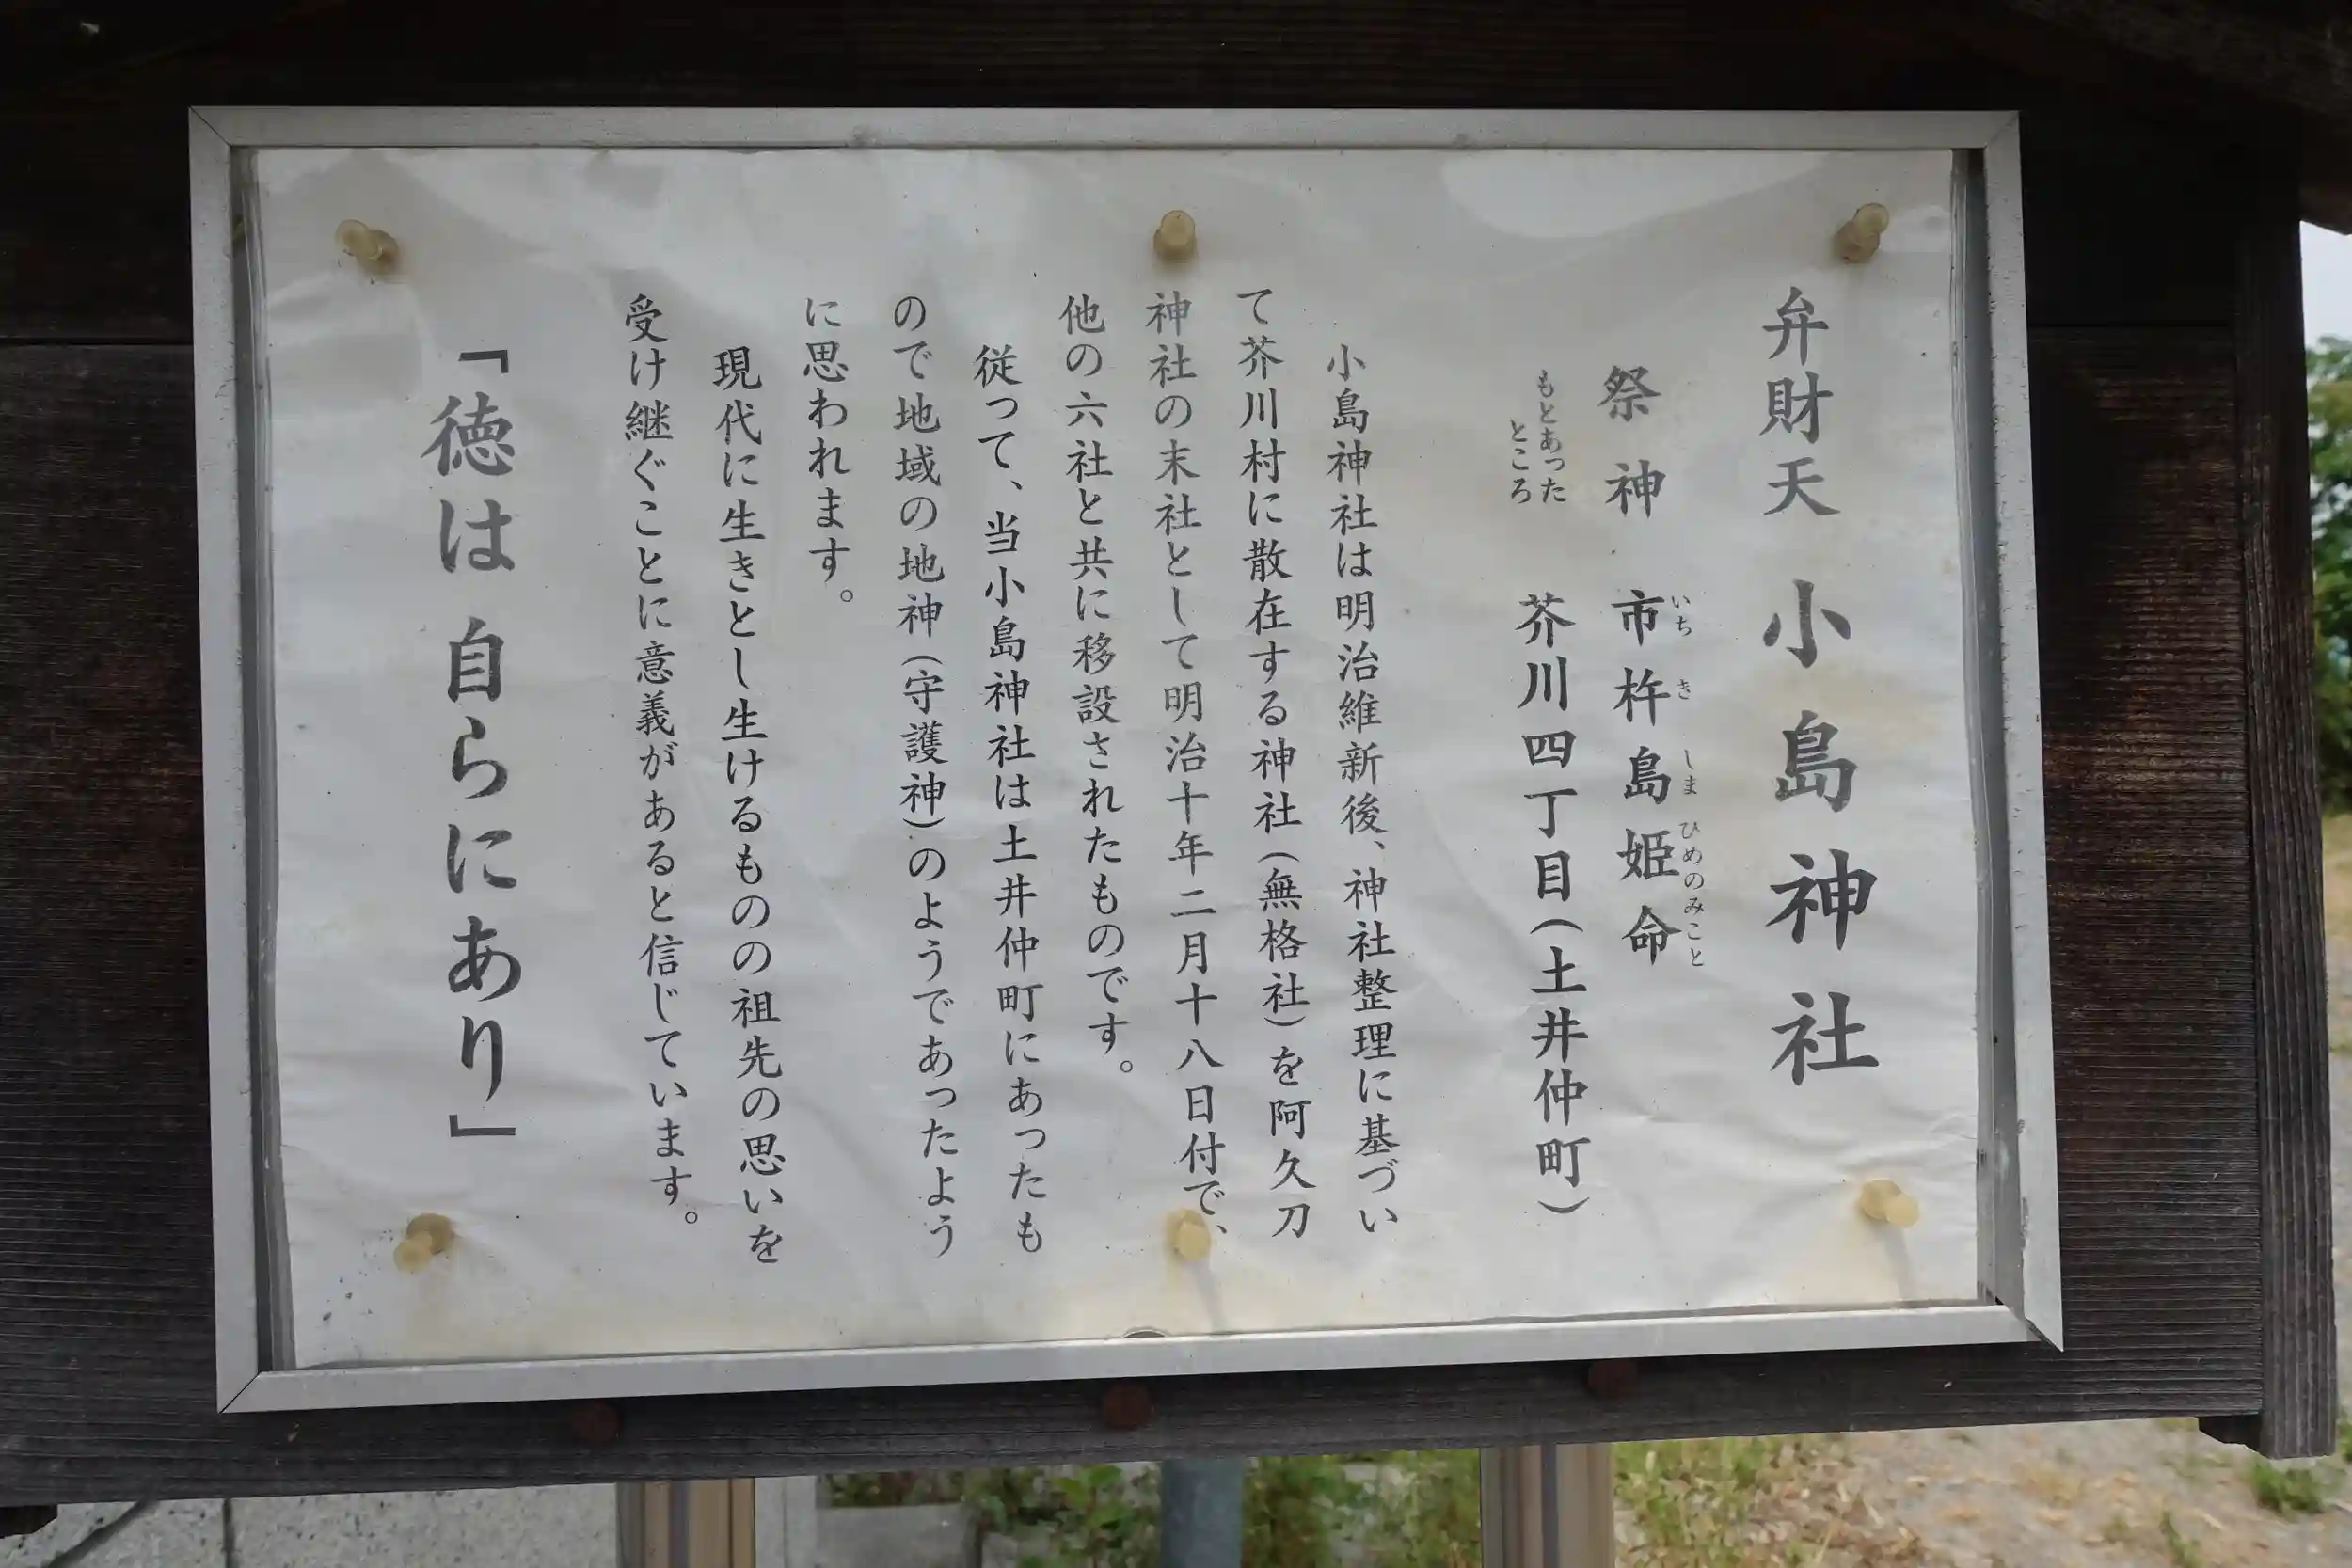 弁財天 小島神社
祭神 市杵島姫命
いち き しま ひめのみこと
もとあった
ところ
芥川四丁目(土井仲町)
小島神社は明治維新後、神社整理に基づい
て芥川村に散在する神社(無格社)を阿久刀
神社の末社として明治十年二月十八日付で、
他の六社と共に移設されたものです。
従って、当小島神社は土井仲町にあったも
ので地域の地神(守護神)のようであったよう
に思われます。
現代に生きとし生けるものの祖先の思いを
受け継ぐことに意義があると信じています。
「徳は 自らにあり」